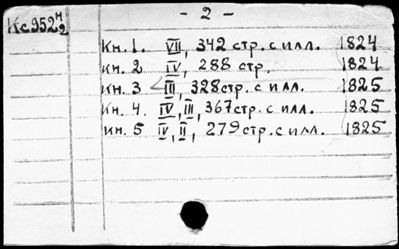 - 2 -
Кс 952 4/2
Кн. 1. VII, 342 стр. с илл. 1824
Кн. 2 IV, 288 стр. 1824
Кн. 3 III, 328 стр. с илл. 1825
Кн. 4. IV, III, 367 стр. с илл. 1825
Кн. 5 IV, II, 279 стр. с илл. 1825